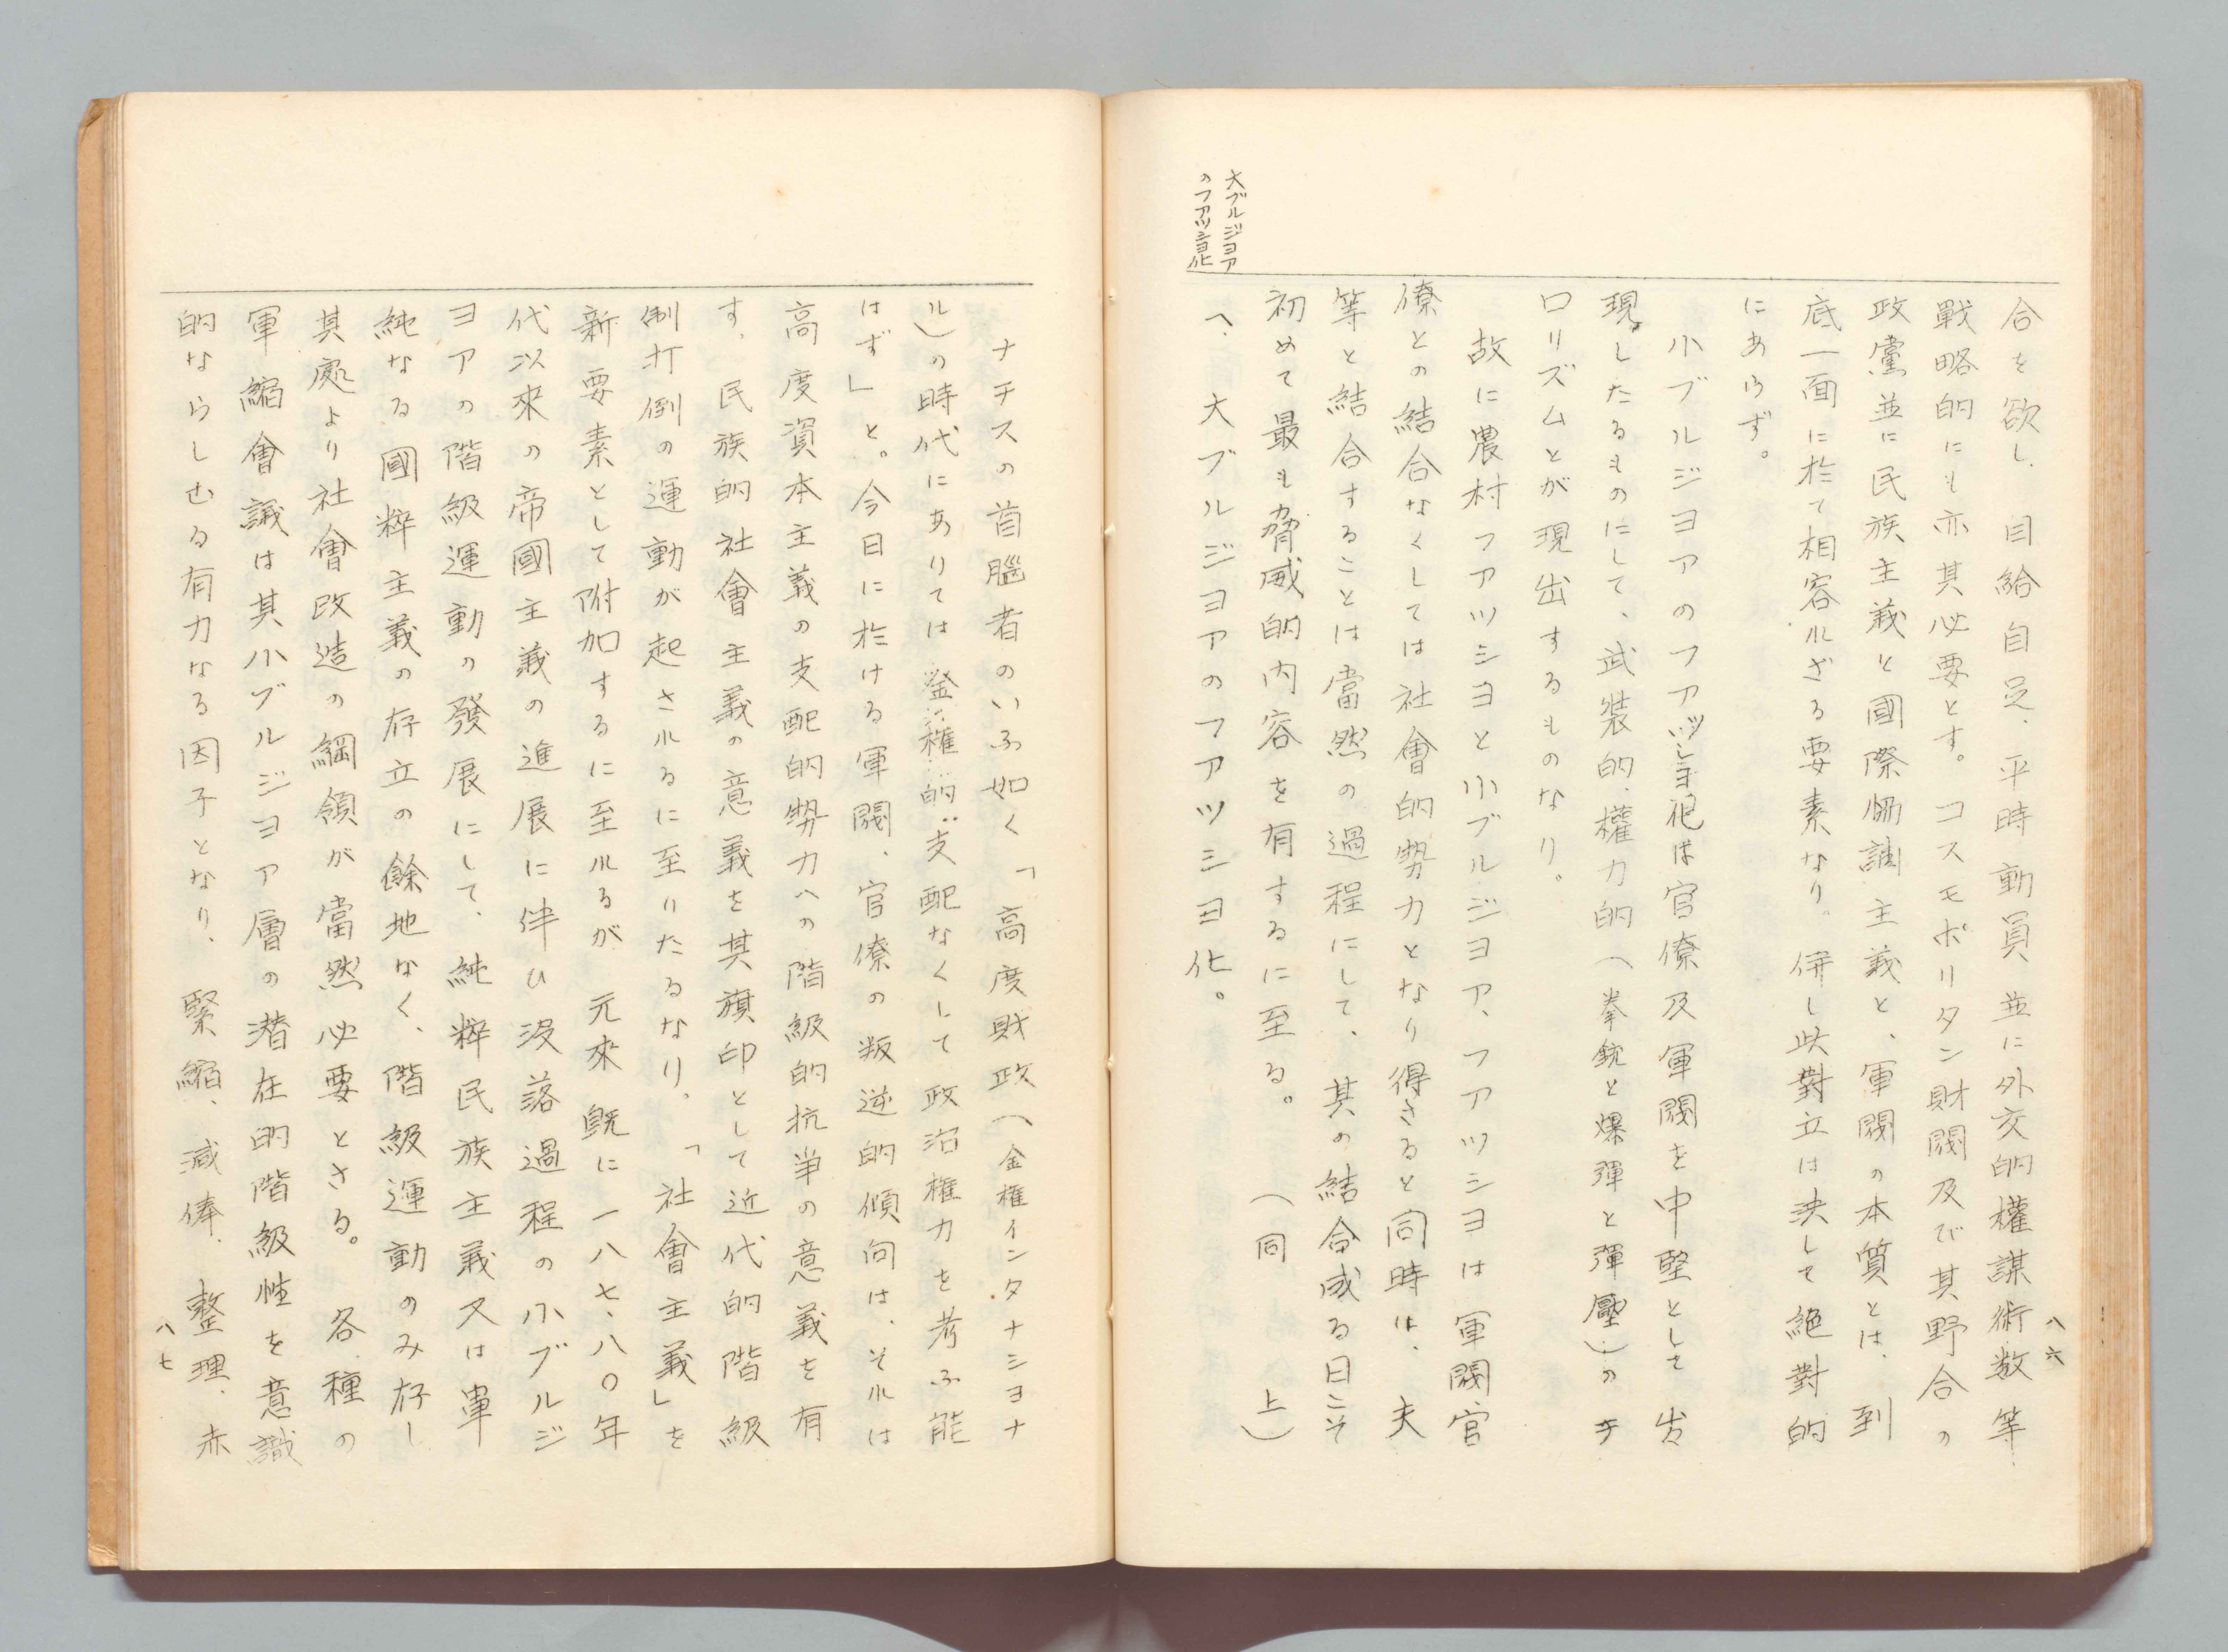 八六
合を欲し、自給自足、平時動員並に外交的權謀術数等、
戦略的にも亦其必要とす。コスモポリタン財閥及び其野合の
政黨並に民族主義と國際協調主義と、軍閥の本質とは、到
底一面に於て相容れざる要素なり。併し此對立は決して絶對的
にあらず。
小ブルジヨアのフアツシヨ化は官僚及軍閥を中堅として出
現したるものにして、武装的、權力的（拳銃と爆彈と彈壓）のテ
ロリズムとが現出するものなり。
故に農村フアツシヨと小ブルジヨア、フアツシヨは軍閥官
僚との結合なくしては社會的勢力となり得さると同時は、夫
等と結合することは當然の過程にして、其の結合成る日こそ
初めて最も脅威的内容を有するに至る。（同上）
へ、大ブルジヨアのフアツシヨ化。
大ブルジヨア
のフアツシヨ化
ナチスの首腦者のいふ如く「高度財政（金権インタナシヨナ
ル）の時代にありては金権的支配なくして政治権力を考ふ能
はず」と。今日に於ける軍閥、官僚の叛逆的傾向は、それは
高度資本主義の支配的勢力への階級的抗爭の意義を有
す、民族的社會主義の意義を其旗印として近代的階級
制打倒の運動が起さるるに至りたるなり。「社會主義」を
新要素として附加するに至れるが元來既に一八七、八〇年
代以來の帝國主義の進展に伴ひ没落過程の小ブルジ
ヨアの階級運動の發展にして、純粹民族主義又は單
純なる國粹主義の存立の餘地なく、階級運動のみ存し
其處より社會改造の綱領が當然必要とさる。各種の
軍縮會議は其小ブルジヨア層の潜在的階級性を意識
的ならしむる有力なる因子となり、緊縮、減俸、整理、赤
八七